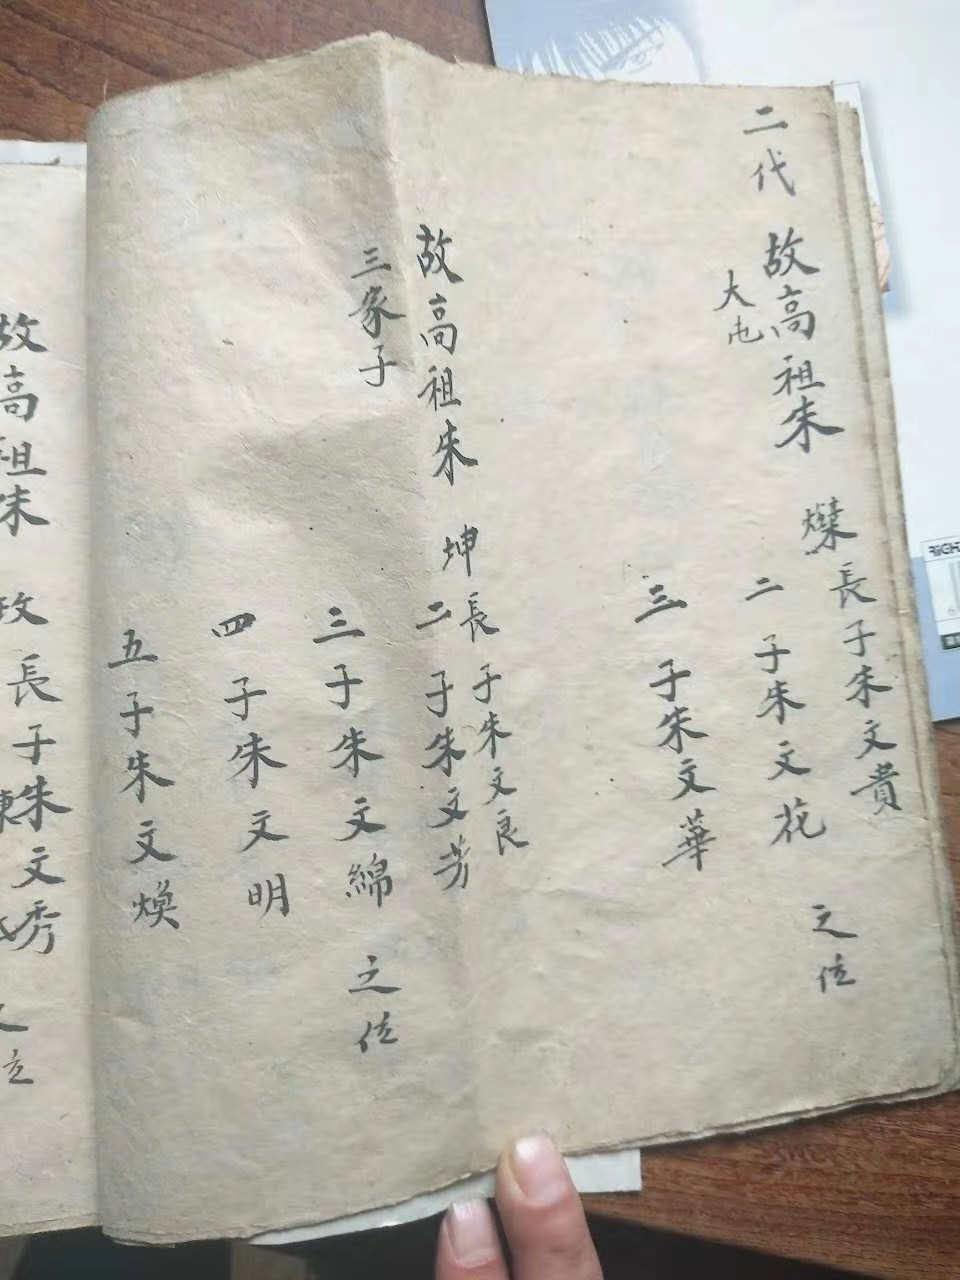 二代
故高祖朱 燦長子朱文貴
大屯
二子朱文花
之位
三子朱文華
故高祖朱 坤長子朱文良
二子朱文芳
三家子
三子朱文綿
之位
四子朱文明
五子朱文煥
故高祖朱 政長子朱文秀
RIGH